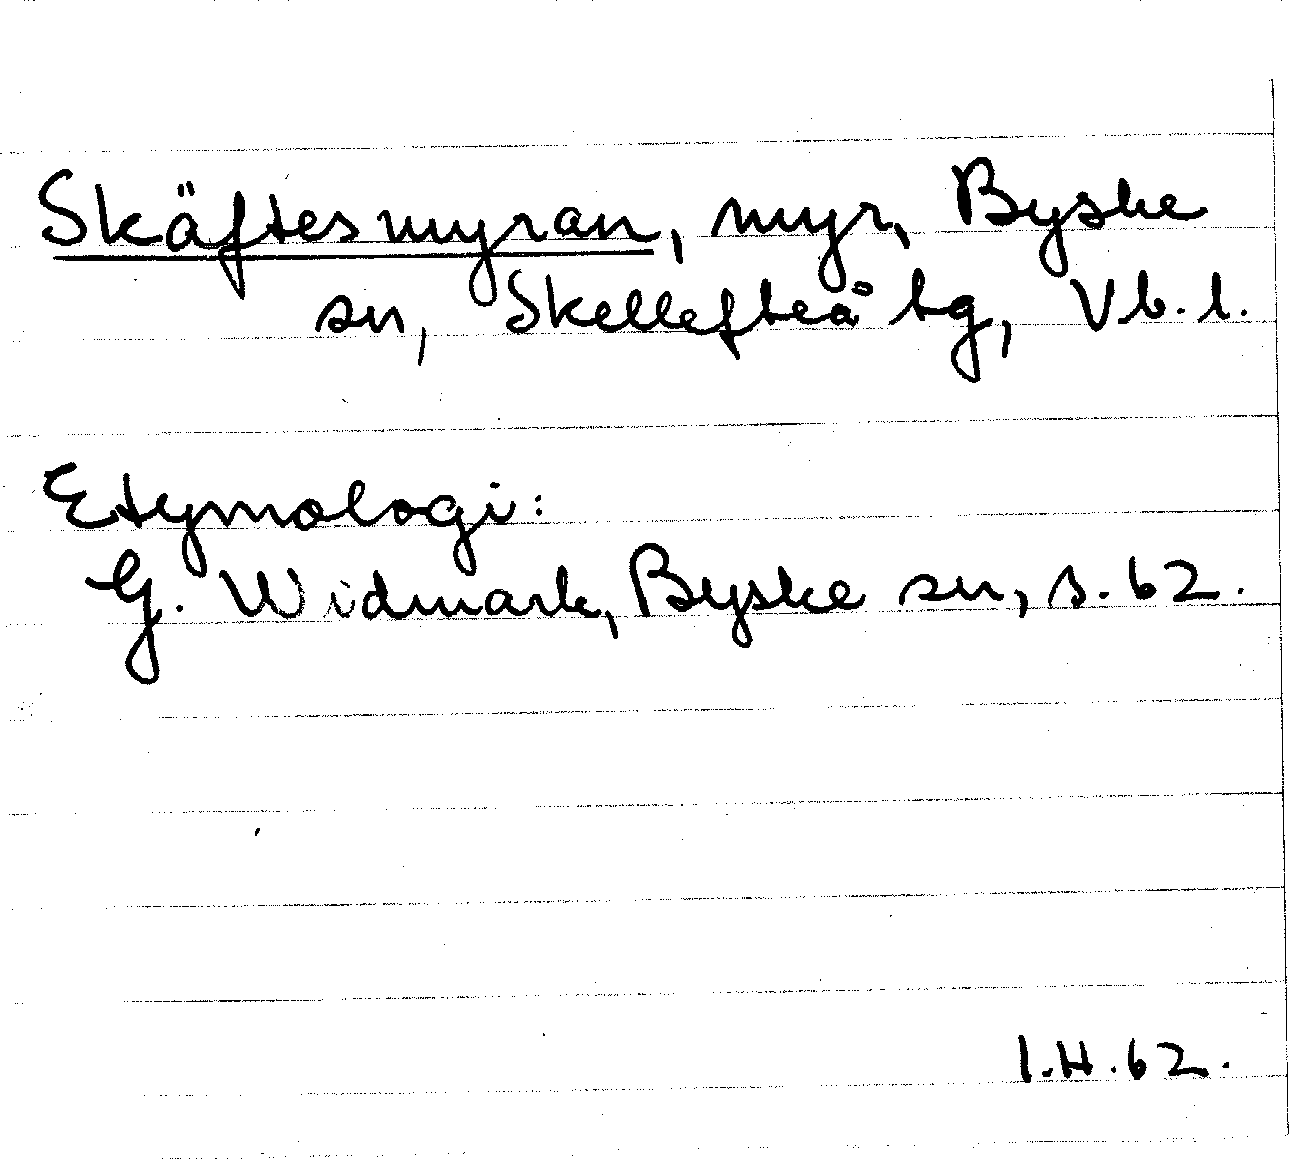 Skäftesmyran, myr, Byske
sn, Skellefteå tg, Vb. l.
Etymologi:
G. Widmark, Byske sn, s. 62.
I.H. 62.